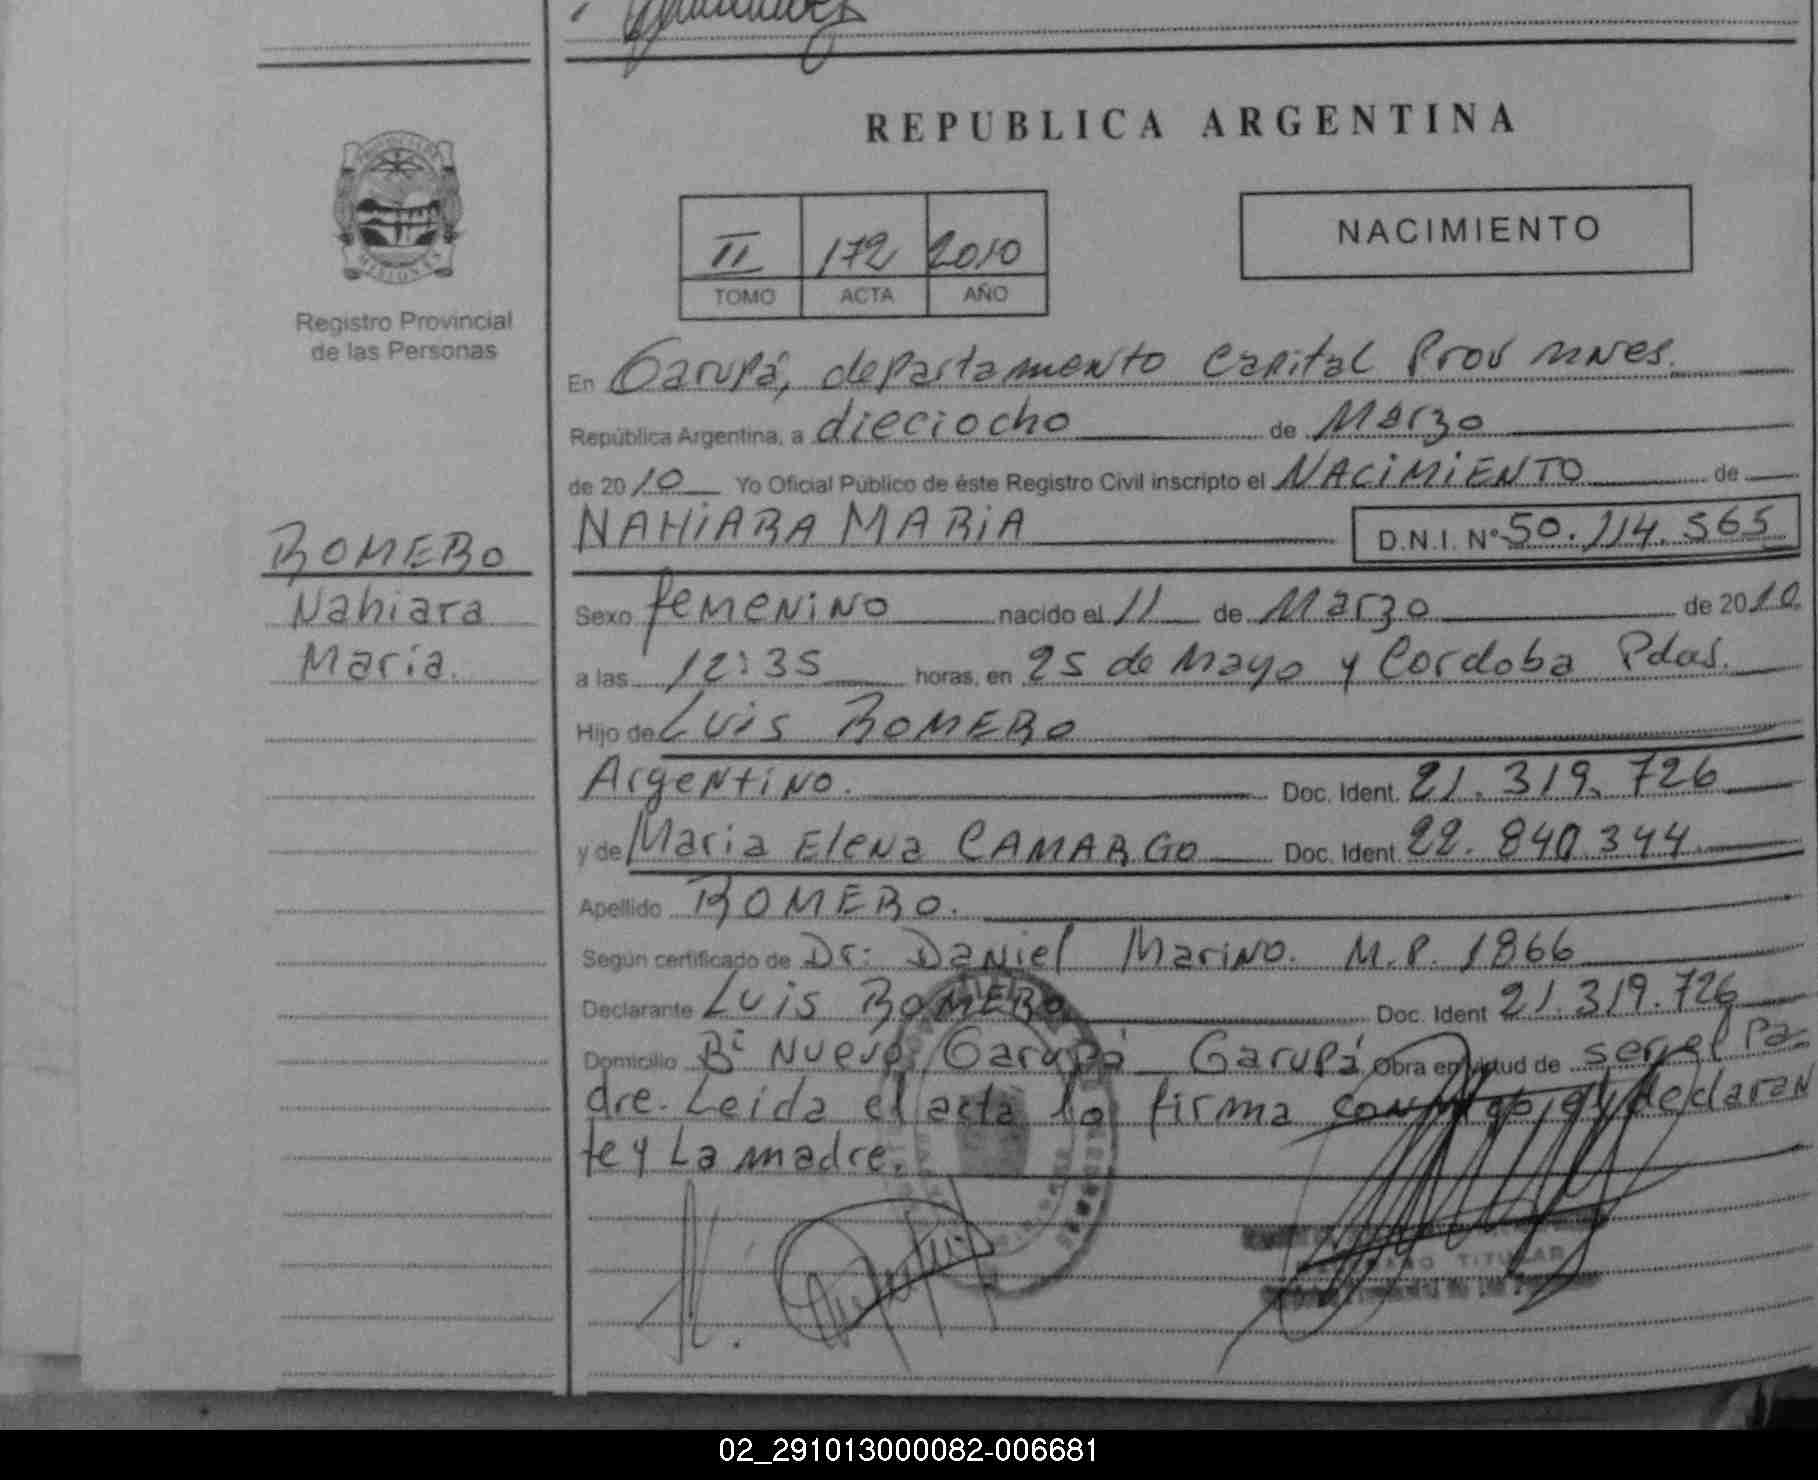 REPUBLICA ARGENTINA
II 172 2010
TOMO ACTA AÑO
NACIMIENTO
MISIONES
Registro Provincial
de las Personas
ROMERO
Nahiara
Maria.
En Garupá, departamento Capital Prov mnes.
República Argentina, a dieciocho de Marzo
de 2010 Yo Oficial Público de éste Registro Civil inscripto el NACIMIENTO de
NAHIARA MARIA D.N.I. Nº 50.114.565
Sexo femenino nacido el 11 de Marzo de 2010
a las 12:35 horas, en 25 de Mayo y Cordoba Pdas.
Hijo de Luis ROMERO
Argentino. Doc. Ident. 21.319.726
y de Maria Elena CAMARGO Doc. Ident. 22.840.344
Apellido ROMERO.
Según certificado de Dr: Daniel Marino. M.P. 1866
Declarante Luis ROMERO Doc. Ident 21.319.726
Domicilio Bº Nuevo Garupá Garupá Obra en virtud de ser el Pa-
dre. Leida el acta la firma conmigo el declaran
te y La madre.
TITULAR
02_291013000082-006681